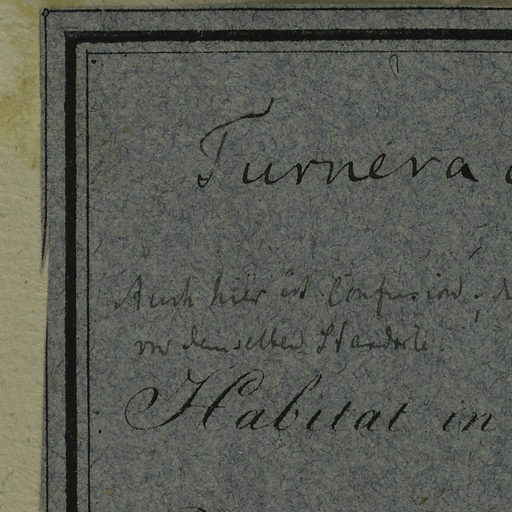 Turnera
Auch hier ist Confusion;
von demselben Standorte.
Habitat in